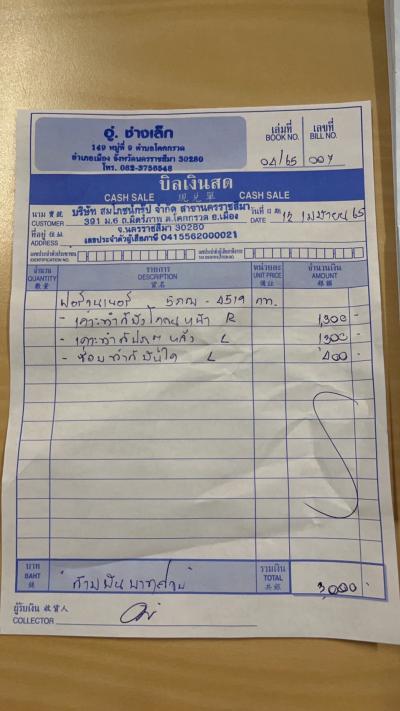 อู่. ช่างเล็ก
149 หมู่ที่ 9 ตำบลโคกกรวด
อำเภอเมือง จังหวัดนครราชสีมา 30280
โทร. 082-3756548
เล่มที่ เลขที่
BOOK NO. BILL NO.
04/65 007
บิลเงินสด
CASH SALE 現兑單 CASH SALE
นาม 寶號 บริษัท สมโภชน์กรุ๊ป จำกัด สาขานครราชสีมา วันที่ 日期 12 เมษายน 65
CUSTOMER 391 ม.6 ถ.มิตรภาพ ต.โคกกรวด อ.เมือง DATE
ที่อยู่ จ.นครราชสีมา 30280
ADDRESS เลขประจำตัวผู้เสียภาษี 0415562000021
จำนวน รายการ หน่วยละ จำนวนเงิน
QUANTITY DESCRIPTION UNIT PRICE AMOUNT
數量 貨名 價註 銀額
ฟอร์จูนเนอร์ - 4519 กท.
- เคาะทำสีบังโคลนหน้า R 1,300 -
- เคาะทำสี หลัง L 1,300 -
- ซ่อมทำสีบันได L 400 -
บาท รวมเงิน
BAHT TOTAL
銖 共銀
3,000 -
ผู้รับเงิน 收貨人
COLLECTOR